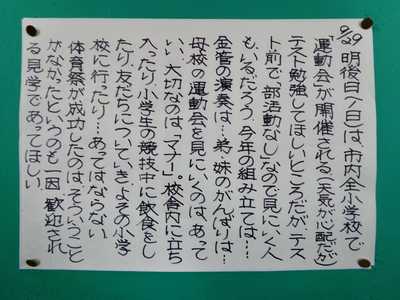 9/29 明後日/1日は、市内全小学校で
「運動会が開催される(天気が心配だが)
テスト勉強してほしいところだが、テス
ト前で「部活動なし」なので見にいく人
もいるだろう。今年の組み立ては…
金管の演奏は…弟・妹のがんばりは…
母校の運動会を見にいくのは、あって
いい、大切なのは「マナー」。校舎内に立ち
入ったり、小学生の競技中に飲食をし
たり、友だちについていき、よその小学
校に行ったり…あってはならない
体育祭が成功したのは、そういうこと
がなかったというのも一因 歓迎され
る見学であってほしい